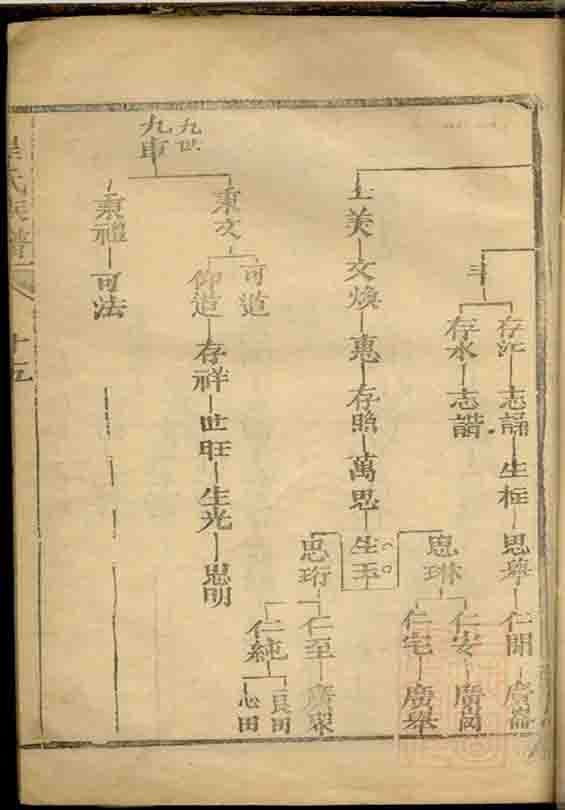 存沱
志誦
生枉
思舜
仁開
斗
存水
志諧
士美
文煥
惠
存照
萬思
生玉
思琳
仁安
廣崗
仁宅
廣舉
思珩
仁至
廣眾
仁純
良田
心田
九世
九申
秉文
可道
仰道
存祥
世旺
生光
思明
秉禮
可法
氏族譜
十五